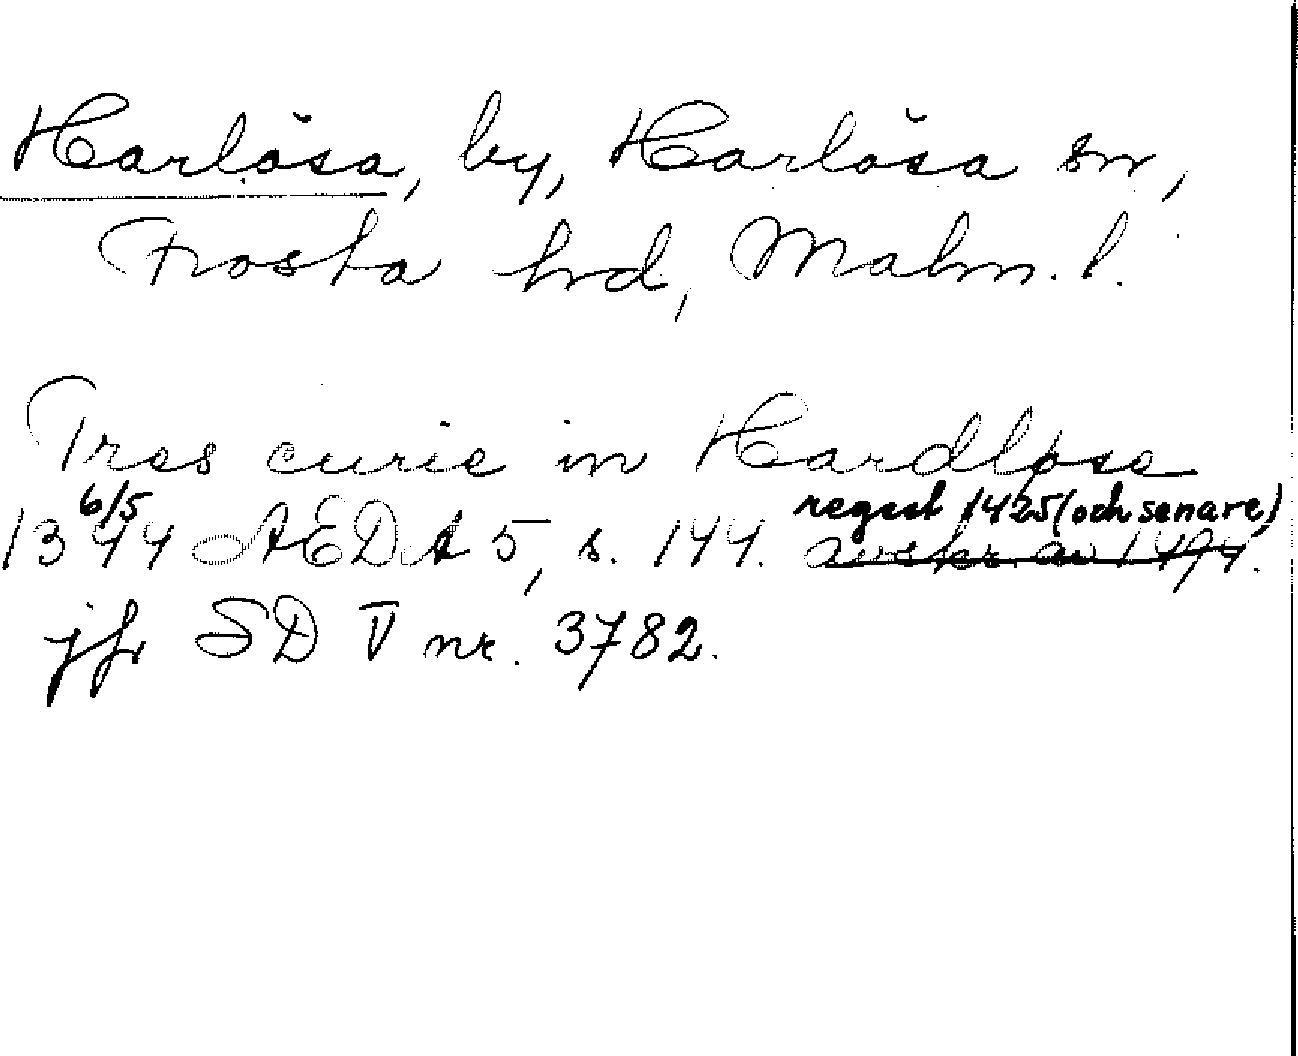 Harlösa, by, Harlösa sn,
Frosta hrd, Malm. l.
Tres curie in Hardløse
6/5 regest 1425 (och senare)
1344 AEDA 5, s. 144. avskr. av 1494.
jfr SD V nr. 3782.